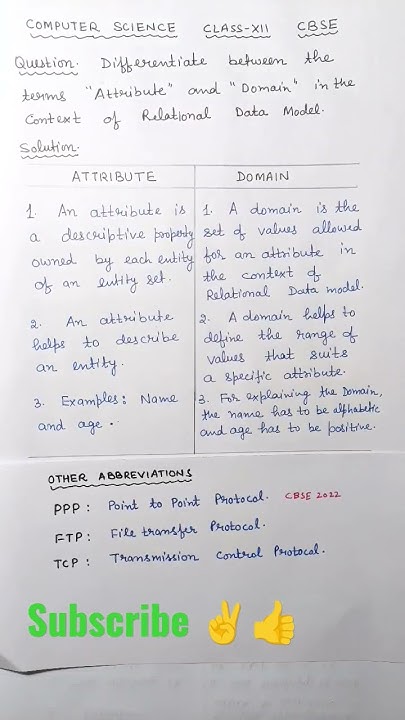 COMPUTER SCIENCE CLASS-XII CBSE
Question. Differentiate between the
terms "Attribute" and "Domain" in the
Context of Relational Data Model.
Solution.
ATTRIBUTE
1. An attribute is
a descriptive property
owned by each entity
of an entity set.
2. An attribute
helps to describe
an entity.
3. Examples: Name
and age.
DOMAIN
1. A domain is the
set of values allowed
for an attribute in
the context of
Relational Data model.
2. A domain helps to
define the range of
values that suits
a specific attribute.
3. For explaining the Domain,
the name has to be alphabetic
and age has to be positive.
OTHER ABBREVIATIONS
PPP: Point to Point Protocol. CBSE 2022
FTP: File transfer Protocol.
TCP: Transmission Control Protocal.
Subscribe ✌️👍